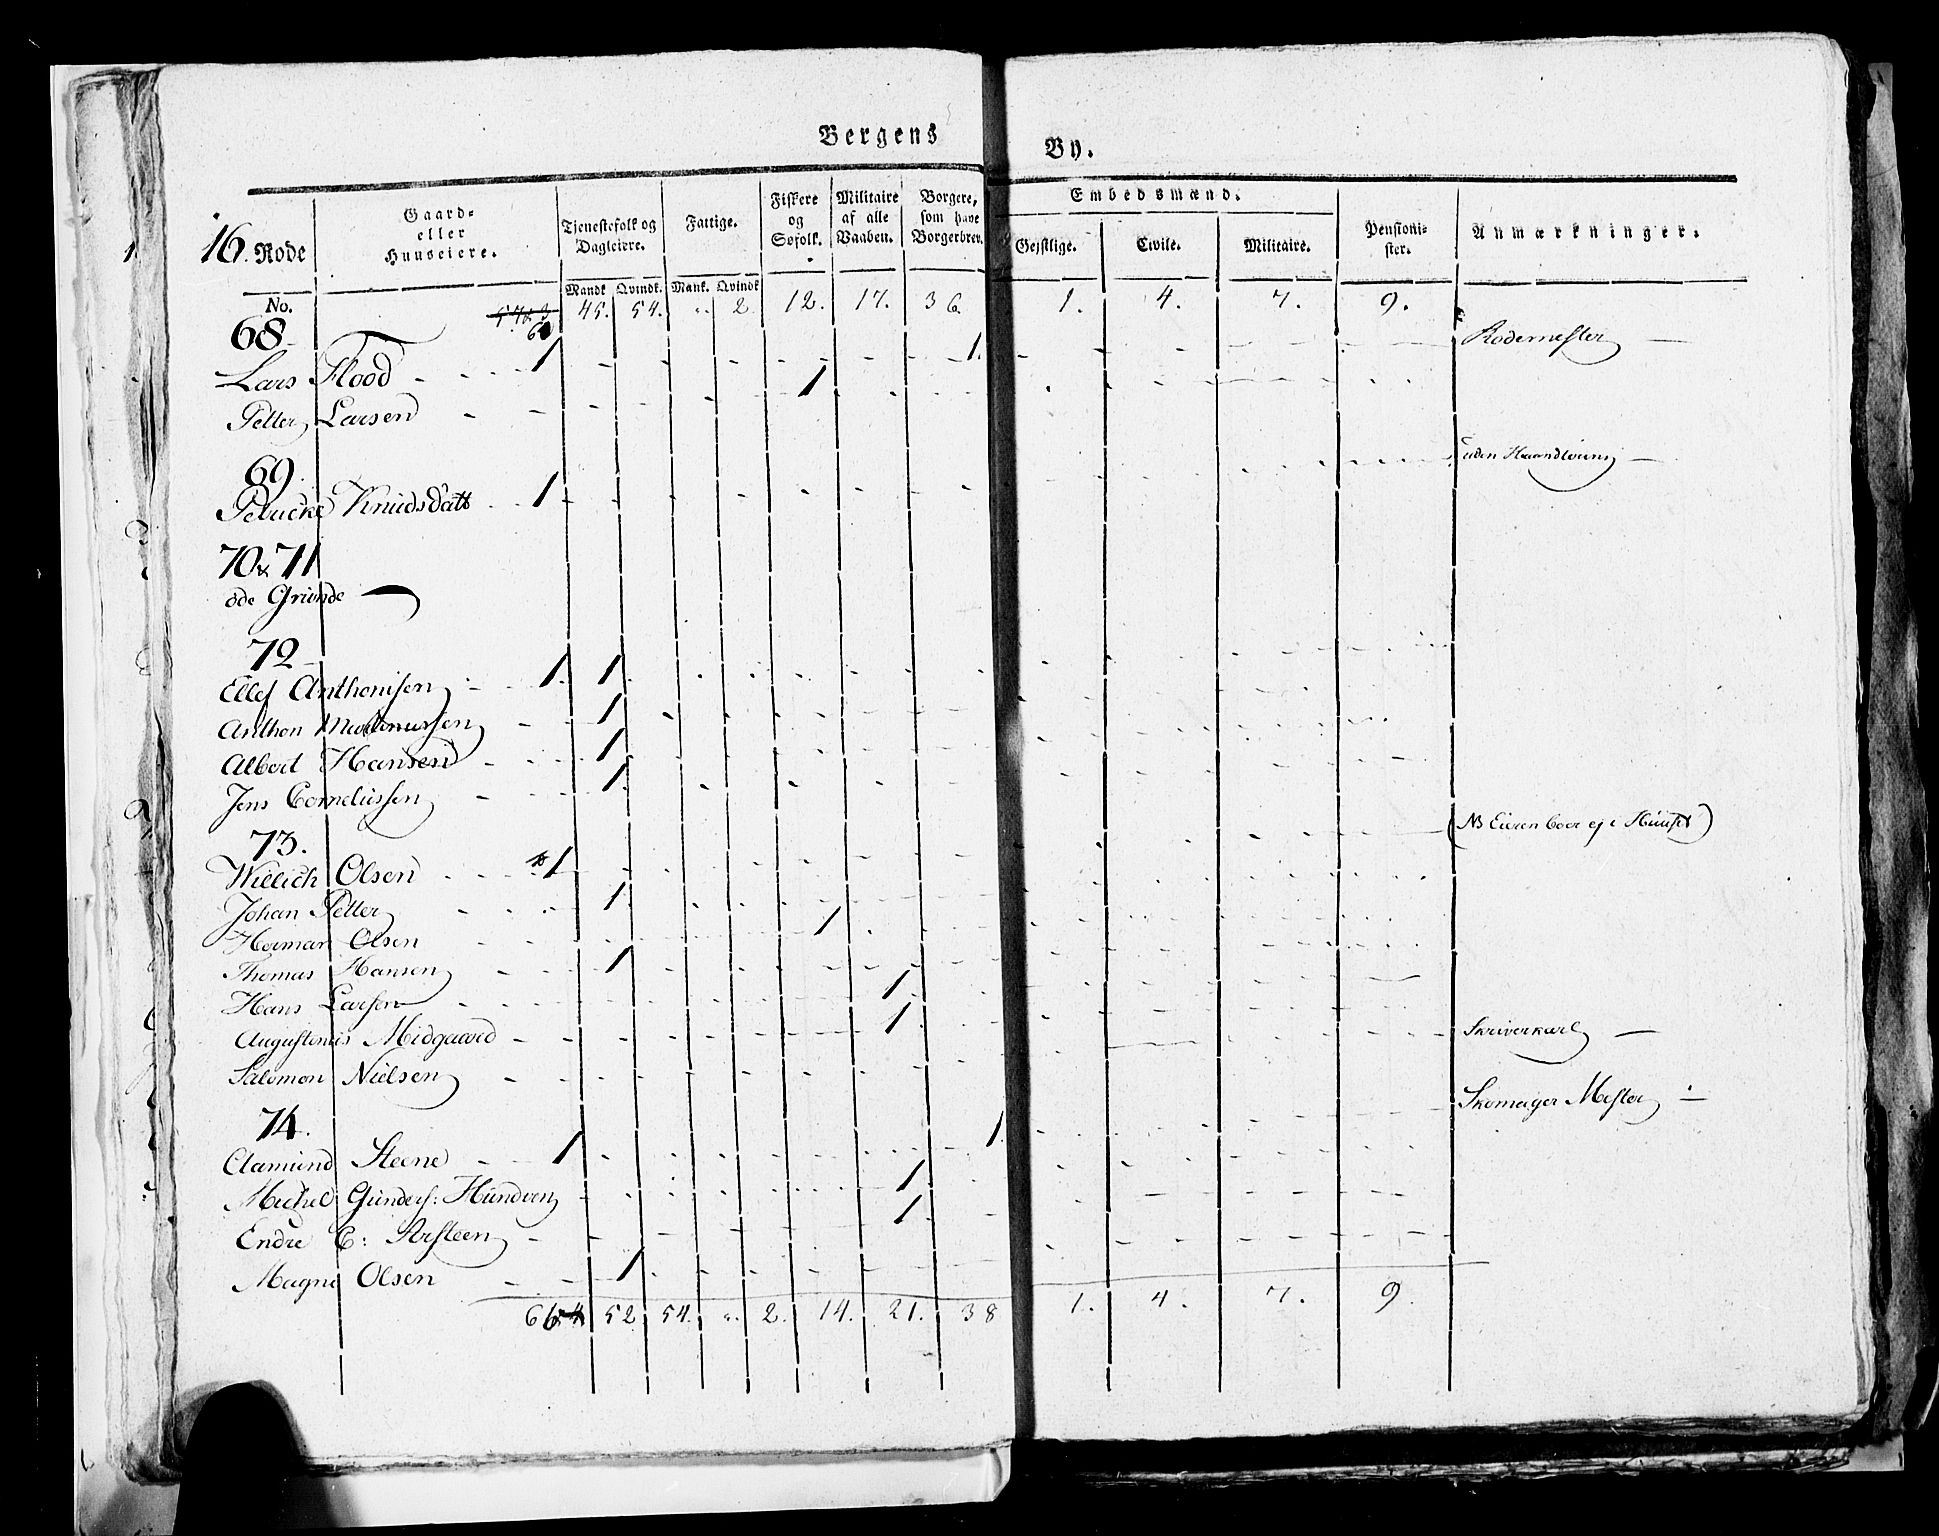 Bergens By.
16. Rode
Gaard-
eller
Huuseiere.
Tjenestefolk og
Dagleiere.
Fattige.
Fiskere
og
Søfolk.
Militaire
af alle
Vaaben.
Borgere,
som have
Borgerbrev.
Embedsmænd.
Gejstlige.
Civile.
Militaire.
Pensioni-
ster.
Anmærkninger.
No.
Mandk. Qvindk. Mank. Qvindk.
60 45. 54. ". 2. 12. 17. 36. 1. 4. 7. 9.
68
Lars Flood 1 1. Rodemester
Petter Larsen 1
69.
Knudsdatt 1 uden
70 & 71
øde Grunde
72
Ellef Anthonisen 1 1
Anthon 1
Albert Hansen 1
Jens Corneliussen 1
73.
Willich Olsen 1 (NB Eieren boer ej i Huuset)
Johan Petter 1
Herman Olsen 1
Thomas Hansen 1
Hans Larsen 1
Augustinus Midgaard 1
Salomon Nielsen Skriverkarl
74.
Amund Steene 1 1 Skomager Mester
Michel Gunders: Hundven 1
Endre C: Arsteen 1
Magne Olsen 1
52 54. ". 2. 14. 21. 38 1. 4. 7. 9.